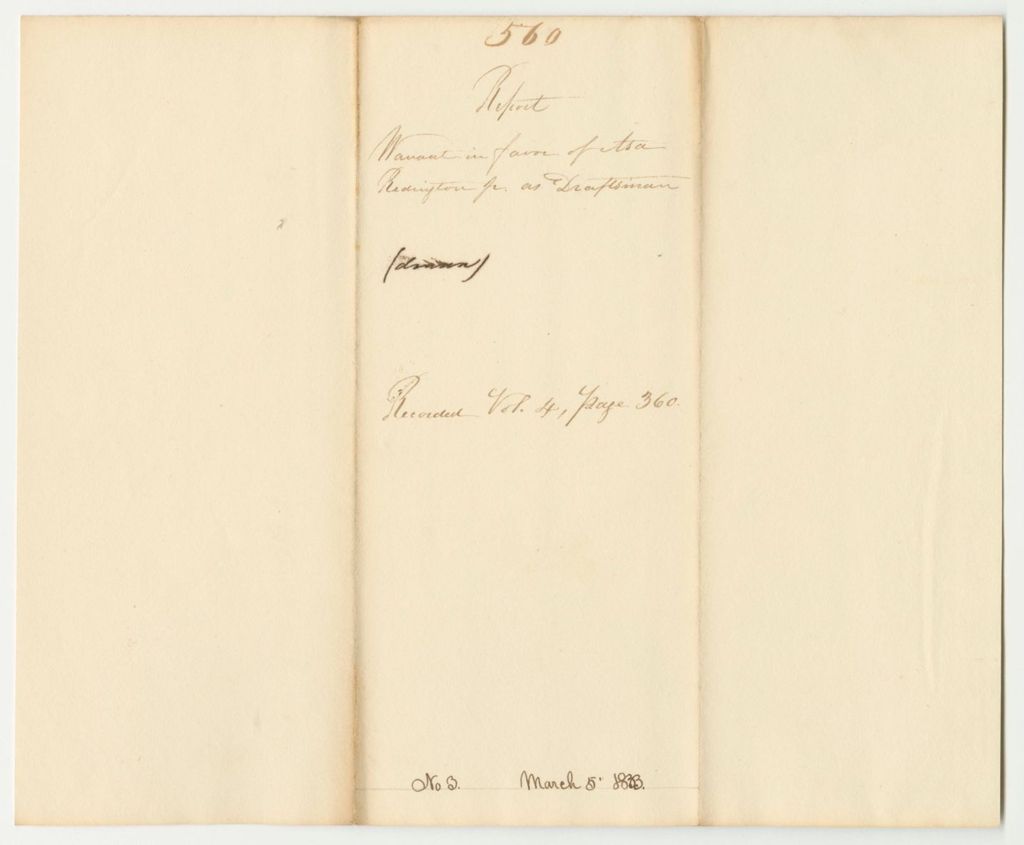 560
Report
Warrant in favor of Asa
Redington Jr. as Draftsman
(drawn)
Recorded Vol. 4, Page 360.
No 3. March 5